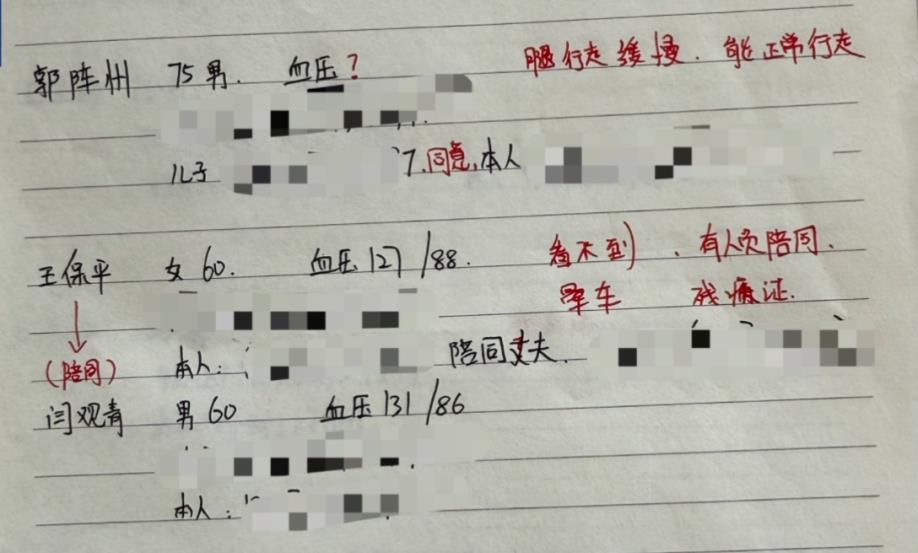 郭阵州 75男. 血压? 腿行走缓慢. 能正常行走
儿子 7.同意.本人
王保平 女60. 血压127/88. 看不到. 有人员陪同.
晕车 残疾证.
(陪同) 本人: 陪同丈夫.
闫观青 男60 血压131/86
本人: